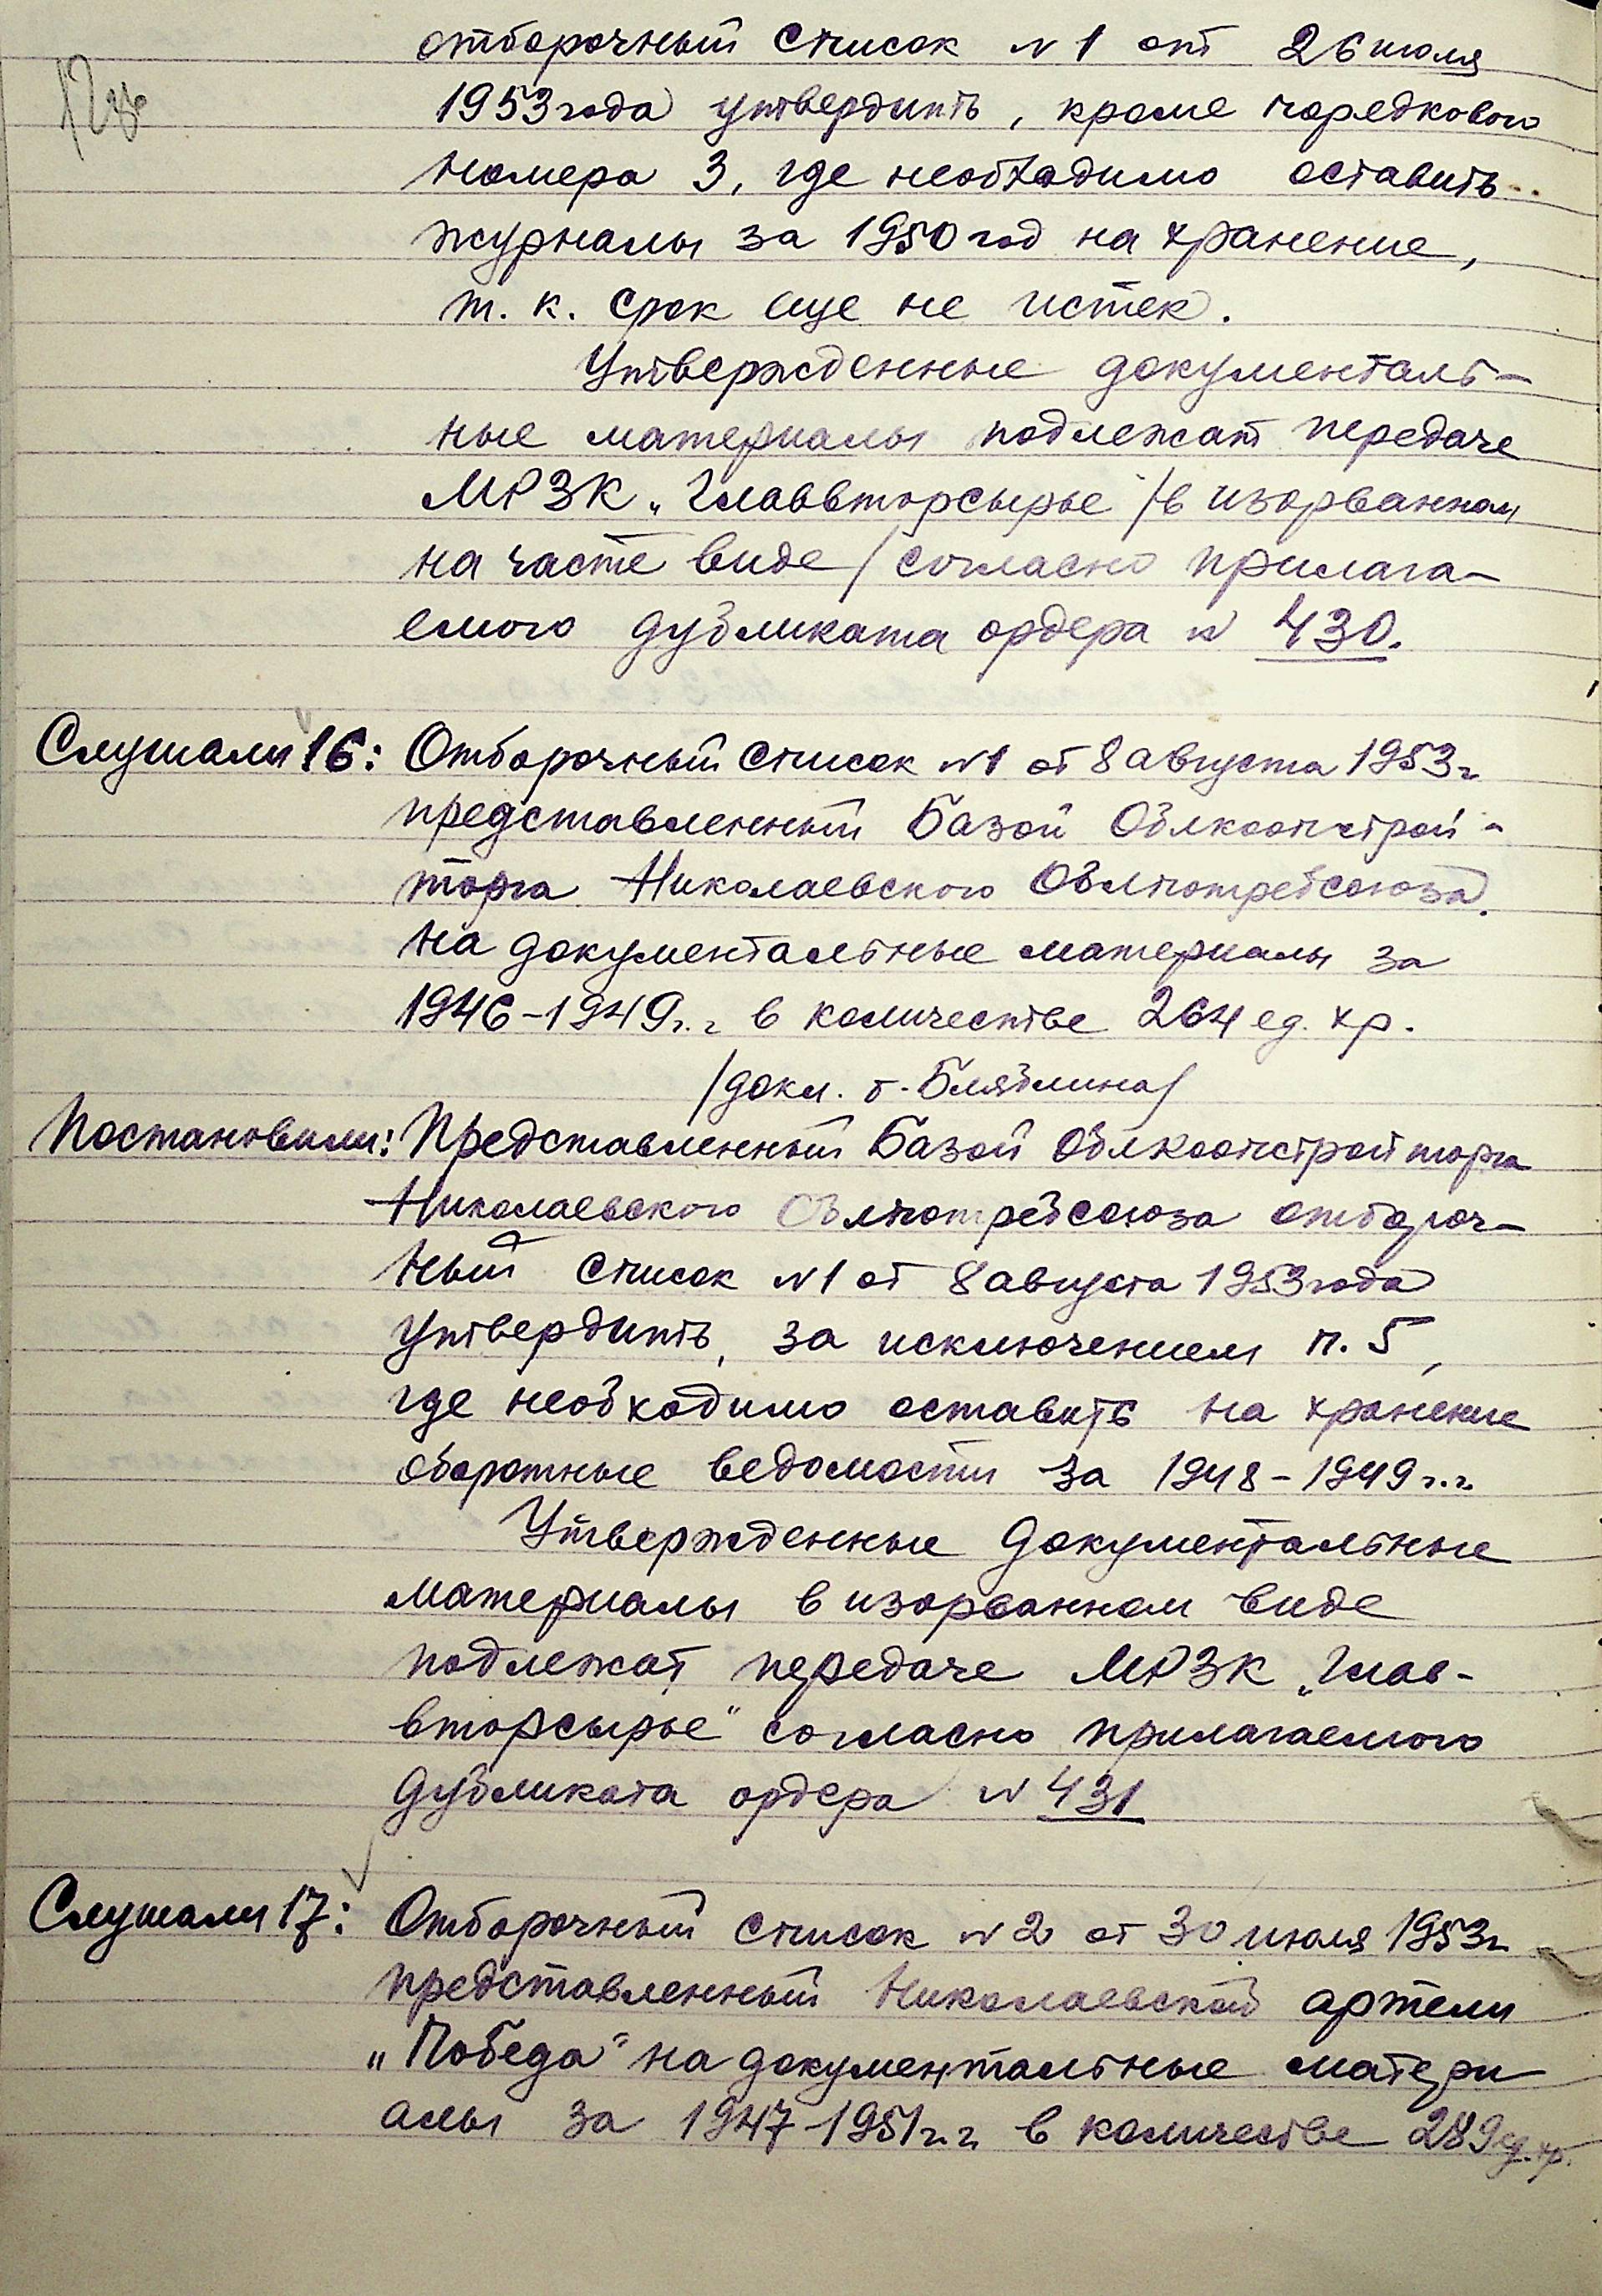 отборочный список №1 от 26 июля
1953 года утвердить, кроме порядкового
номера 3, где необходимо оставить
журналы за 1950 год на хранение,
т. к. срок еще не истек.
Утвержденные документаль-
ные материалы подлежат передаче
МРЗК „Главвторсырье" /в изорванном
на части виде/ согласно прилага-
емого дубликата ордера № 430.
Слушали 16: Отборочный список №1 от 8 августа 1953 г.
представленный Базой Облкоопстрой-
торга Николаевского Облпотребсоюза
на документальные материалы за
1946-1949 г.г в количестве 264 ед. хр.
/докл. т. Бляблина/
Постановили: Представленный Базой Облкоопстройторга
Николаевского Облпотребсоюза отбороч-
ный список №1 от 8 августа 1953 года
утвердить, за исключением п. 5,
где необходимо оставить на хранение
оборотные ведомости за 1948-1949 г.г.
Утвержденные документальные
материалы в изорванном виде
подлежат передаче МРЗК „Глав-
вторсырье" согласно прилагаемого
дубликата ордера № 431
Слушали 17: Отборочный список №2 от 30 июля 1953 г.
представленный Николаевской артели
„Победа" на документальные матери
алы за 1947-1951 г.г. в количестве 289 ед. хр.